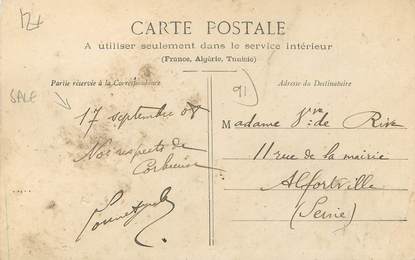 CARTE POSTALE
A utiliser seulement dans le service intérieur
(France, Algérie, Tunisie)
Partie réservée à la Correspondance
Adresse du Destinataire
SALE
91
17 septembre 08
Nos respects de
Corbreuse
Madame Vve de Rive
11 rue de la mairie
Alfortville
(Seine)